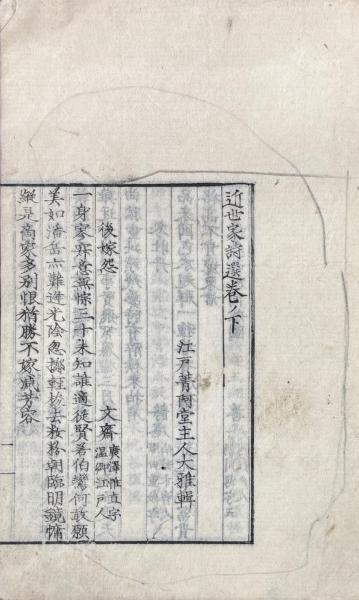 近世家詩選卷ノ下
江戸菁閣堂主人大雅輯
後嫁怨
文齋 廣澤惟直字
溫卿江戸人
一身寥寂意無悰三十未知誰適從賢著伯鸞何敢願
美如潘岳亦難逢光陰忽擲輕梭去敉朝臨明鏡慵
縱是商家多別恨猶勝不嫁減芳容